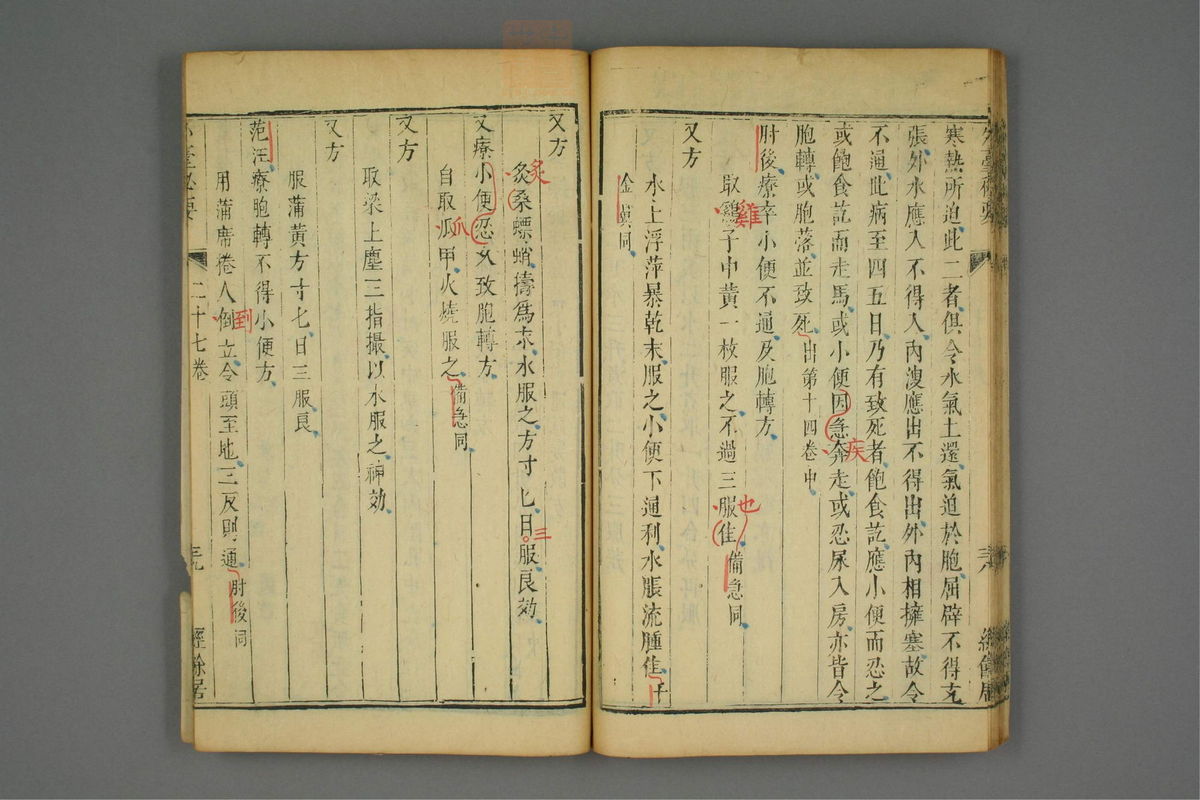 寒熱所迫此二者俱令水氣土還氣迫於胞屈辟不得充
張外水應入不得入內溲應出不得出外內相擁塞故令
不通此病至四五日乃有致死者飽食訖應小便而忍之
或飽食訖而走馬或小便因急奔走或忍尿入房亦皆令
疾
胞轉或胞落並致死出第十四卷中
肘後療卒小便不通及胞轉方
取鷄子中黃一枚服之不過三服佳備急同
雞
也
又方
水上浮萍暴乾末服之小便下通利水脹流腫佳千
金翼同
又方
灸桑螵蛸擣為末水服之方寸匕日服良効
炙
三
又療小便忍久致胞轉方
自取瓜甲火燒服之備急同
爪
又方
取梁上塵三指撮以水服之神効
又方
服蒲黃方寸匕日三服良
范汪療胞轉不得小便方
用蒲席捲人倒立令頭至地三反則通肘後同
到
二十七卷
三九
經餘居